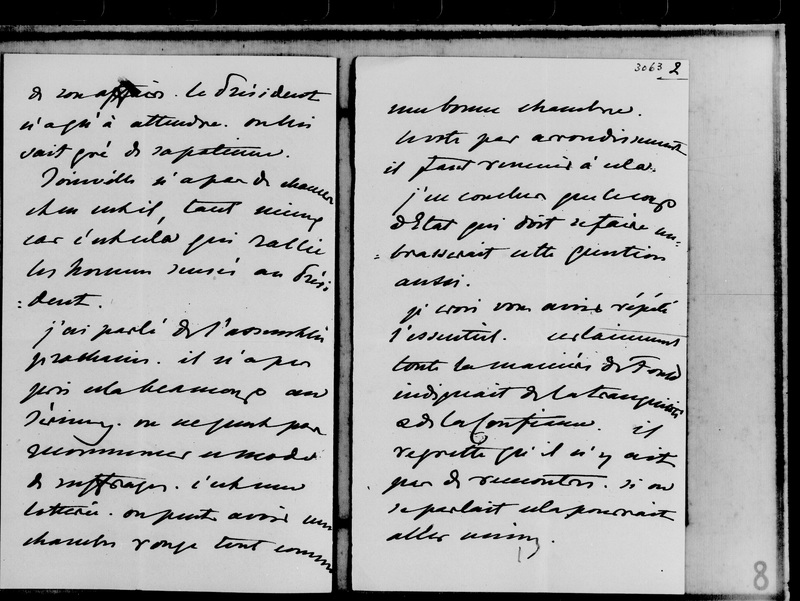 de son affaire. le Président
n'a qu'à attendre. on lui
sait gré de sa patience.
Joinville n'a pas de chance
chen entil, tant mieux
car c'est cela qui rallie
les hommes sensés au Prési
=dent.
j'ai parlé de l'assemblée
prochaine. il n'a pas
pris cela beaucoup au
sérieux. on ne peut pas
recommencer ce mode
de suffrages. c'est une
lotterie. on peut avoir une
chambre rouge tout comme
3063 2
une bonne chambre.
le vote par arrondissement
il faut revenir à cela.
j'en conclus que le coup
d'Etat qui doit se faire em-
=brasserait cette question
aussi.
je crois vous avoir répété
l'essentiel. certainement
toute la manière de Fould
indiquait de la tranquillité
& de la Confiance. il
regrette qu'il n'y ait
pas de rencontres. si on
se parlait cela pourrait
aller mieux.
8